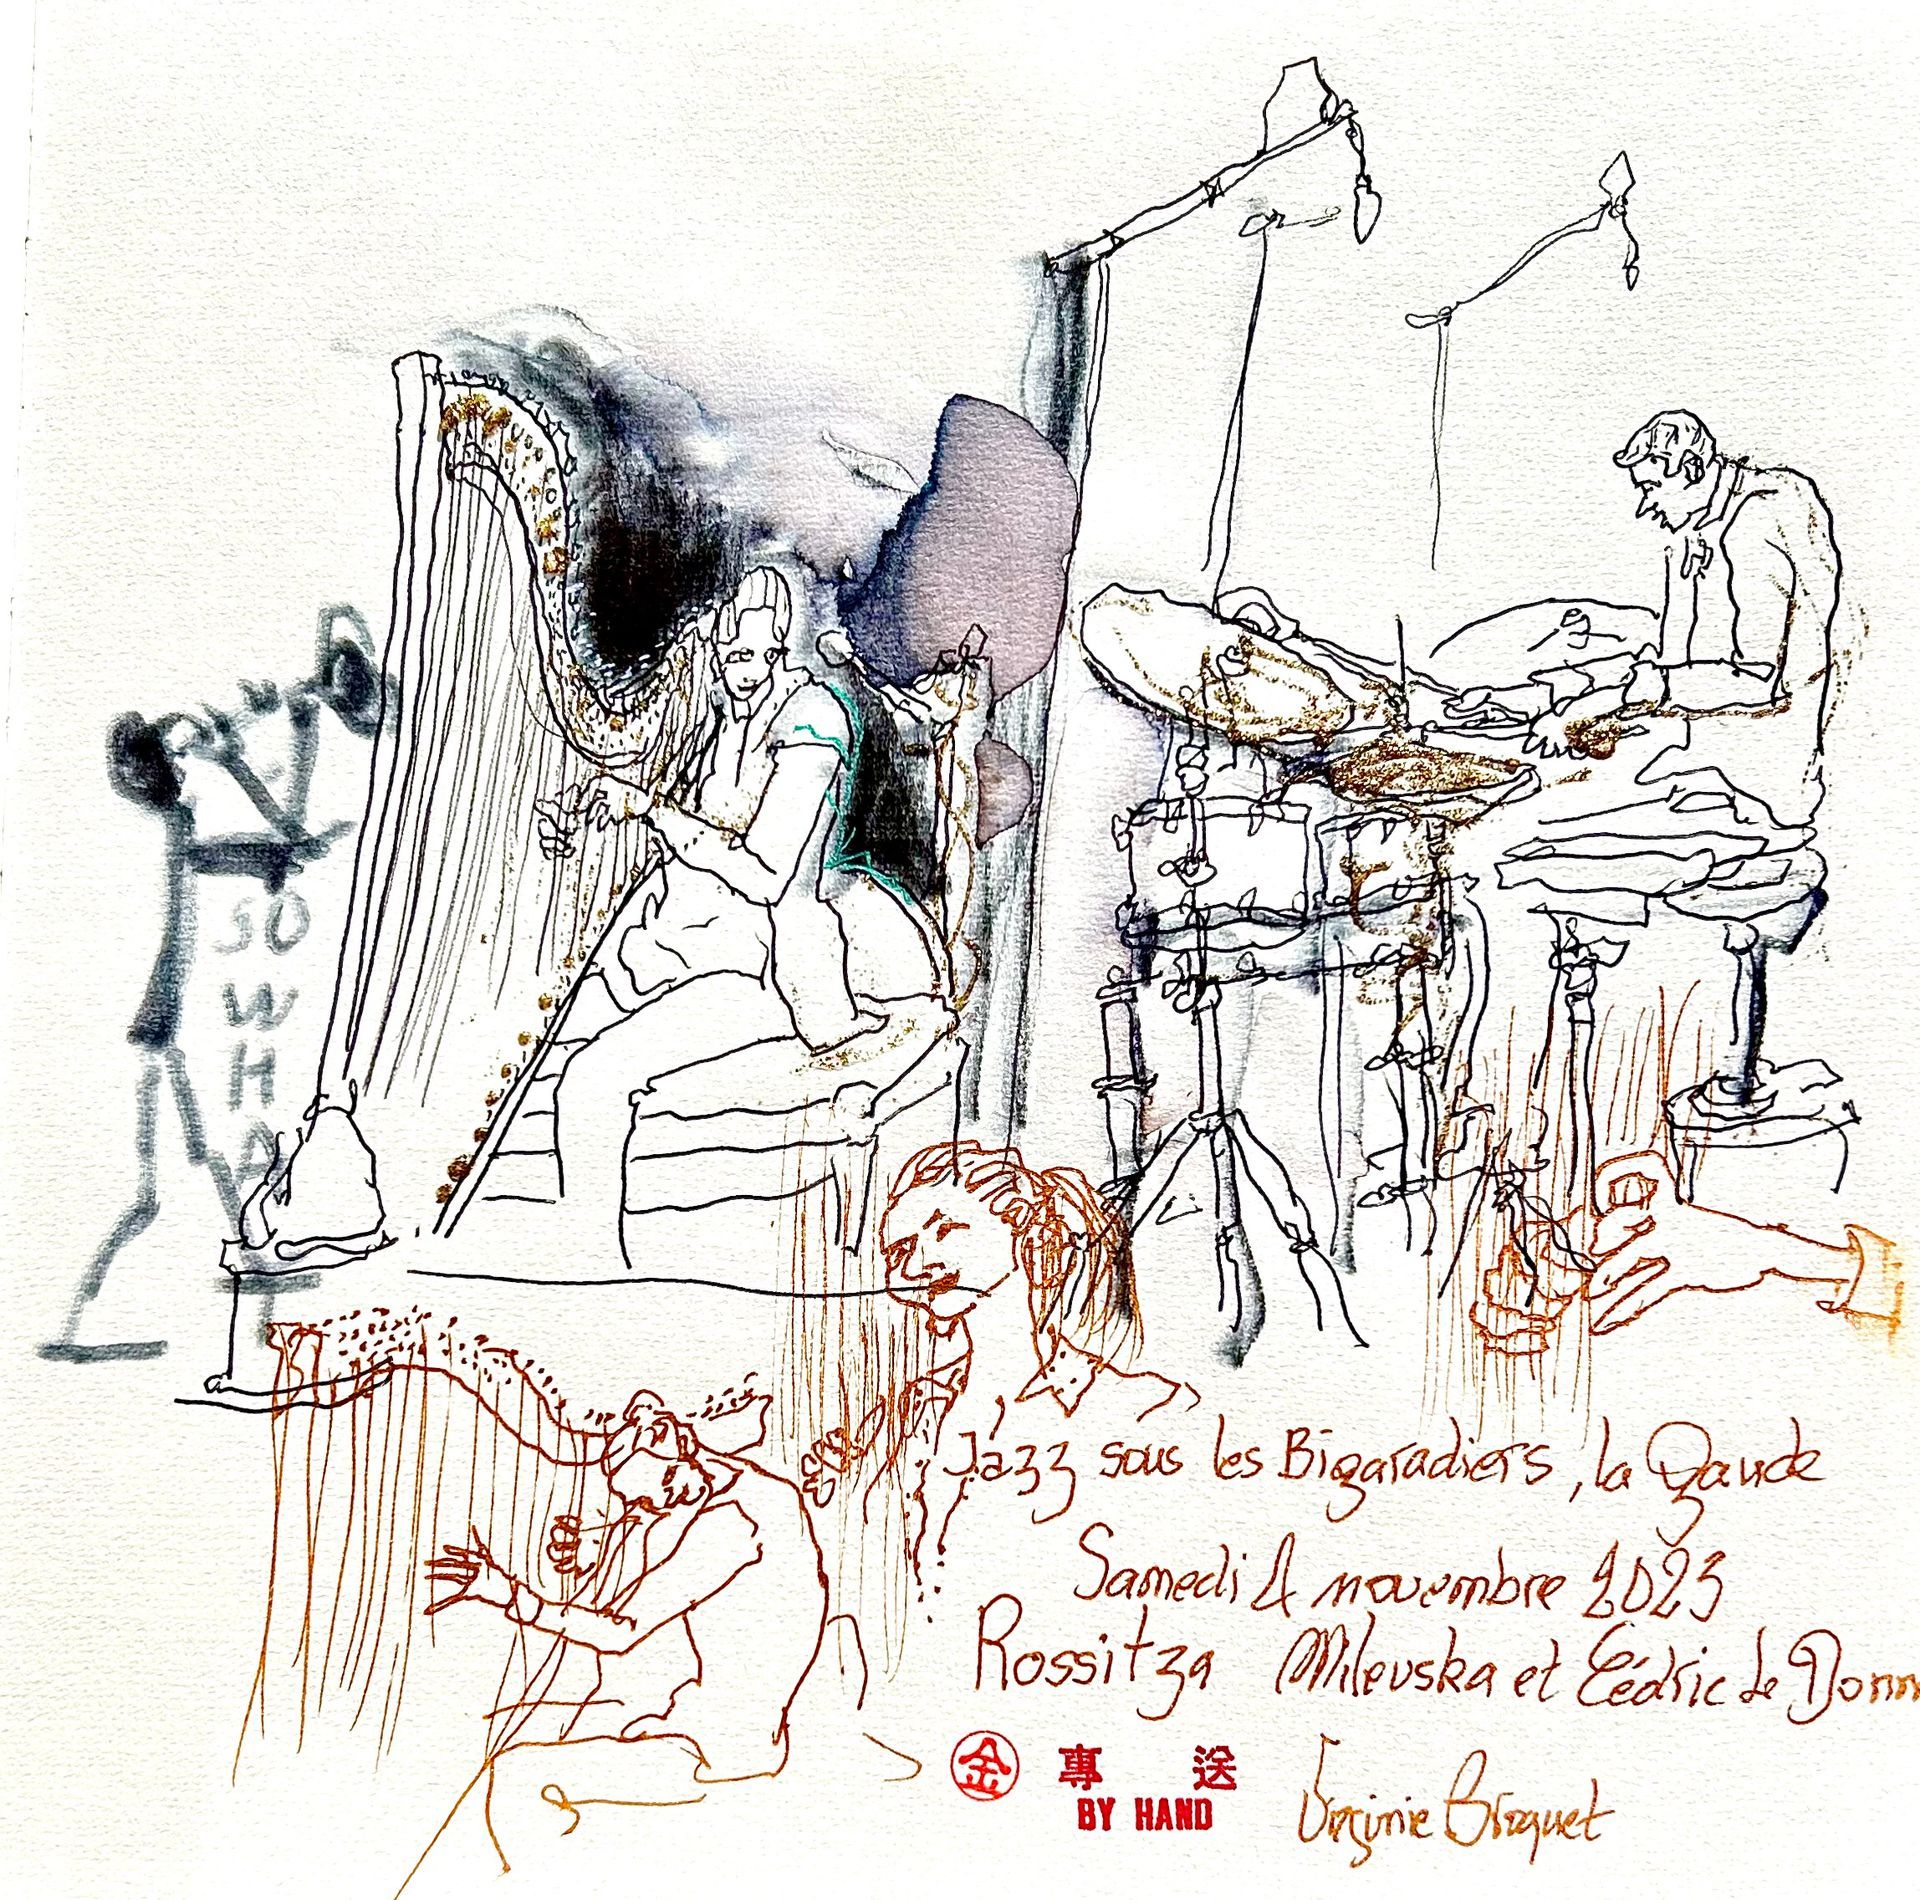 SO
W
H
A
T
Jazz sous les Bigaradiers, la Gaude
Samedi 4 novembre 2023
Rossitza Milevska et Cédric de Donn
金 專 送
BY HAND
Virginie Broquet